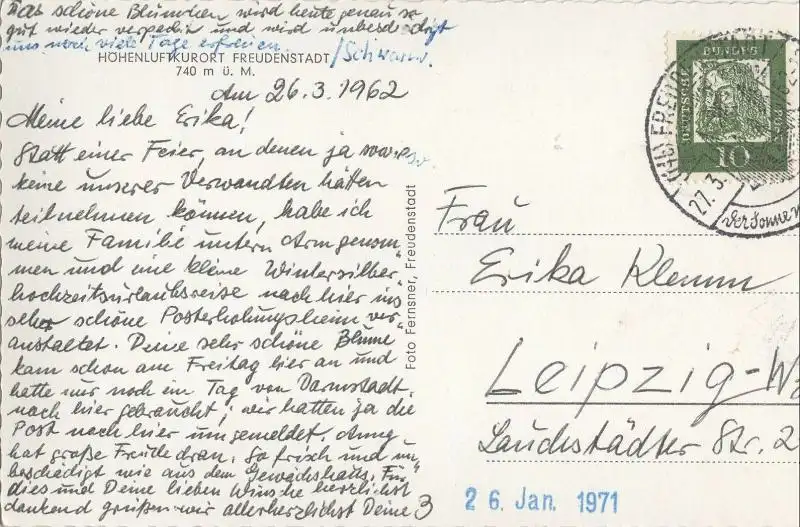 Das schöne Blümchen wird heute genau so
gut wieder verpackt und wird unbeschädigt
uns noch viele Tage erfreuen.
/Schwarzw.
HÖHENLUFTKURORT FREUDENSTADT
740 m ü. M.
Am 26.3.1962
Meine liebe Erika!
Statt einer Feier, an denen ja sowieso
keine unserer Verwandten hätten
teilnehmen können, habe ich
meine Familie untern Arm genom-
men und eine kleine Wintersilber-
hochzeitsurlaubsreise nach hier ins
sehr schöne Posterholungsheim ver-
anstaltet. Deine sehr schöne Blume
kam schon am Freitag hier an und
hatte nur noch ein Tag von Darmstadt
nach hier gebraucht; wir hatten ja die
Post nach hier umgemeldet. Anny
hat große Freude dran. So frisch und un-
beschädigt wie aus dem Gewächshaus. Für
dies und Deine lieben Wünsche herzlichst
dankend grüßen wir allerherzlichst Deine 3
Foto Fernsner, Freudenstadt
DEUTSCHE BUNDESPOST
10
27.3.
der Sonne
Frau
Erika Klemm
Leipzig-W
Lauchstädter Str. 2
26. Jan. 1971